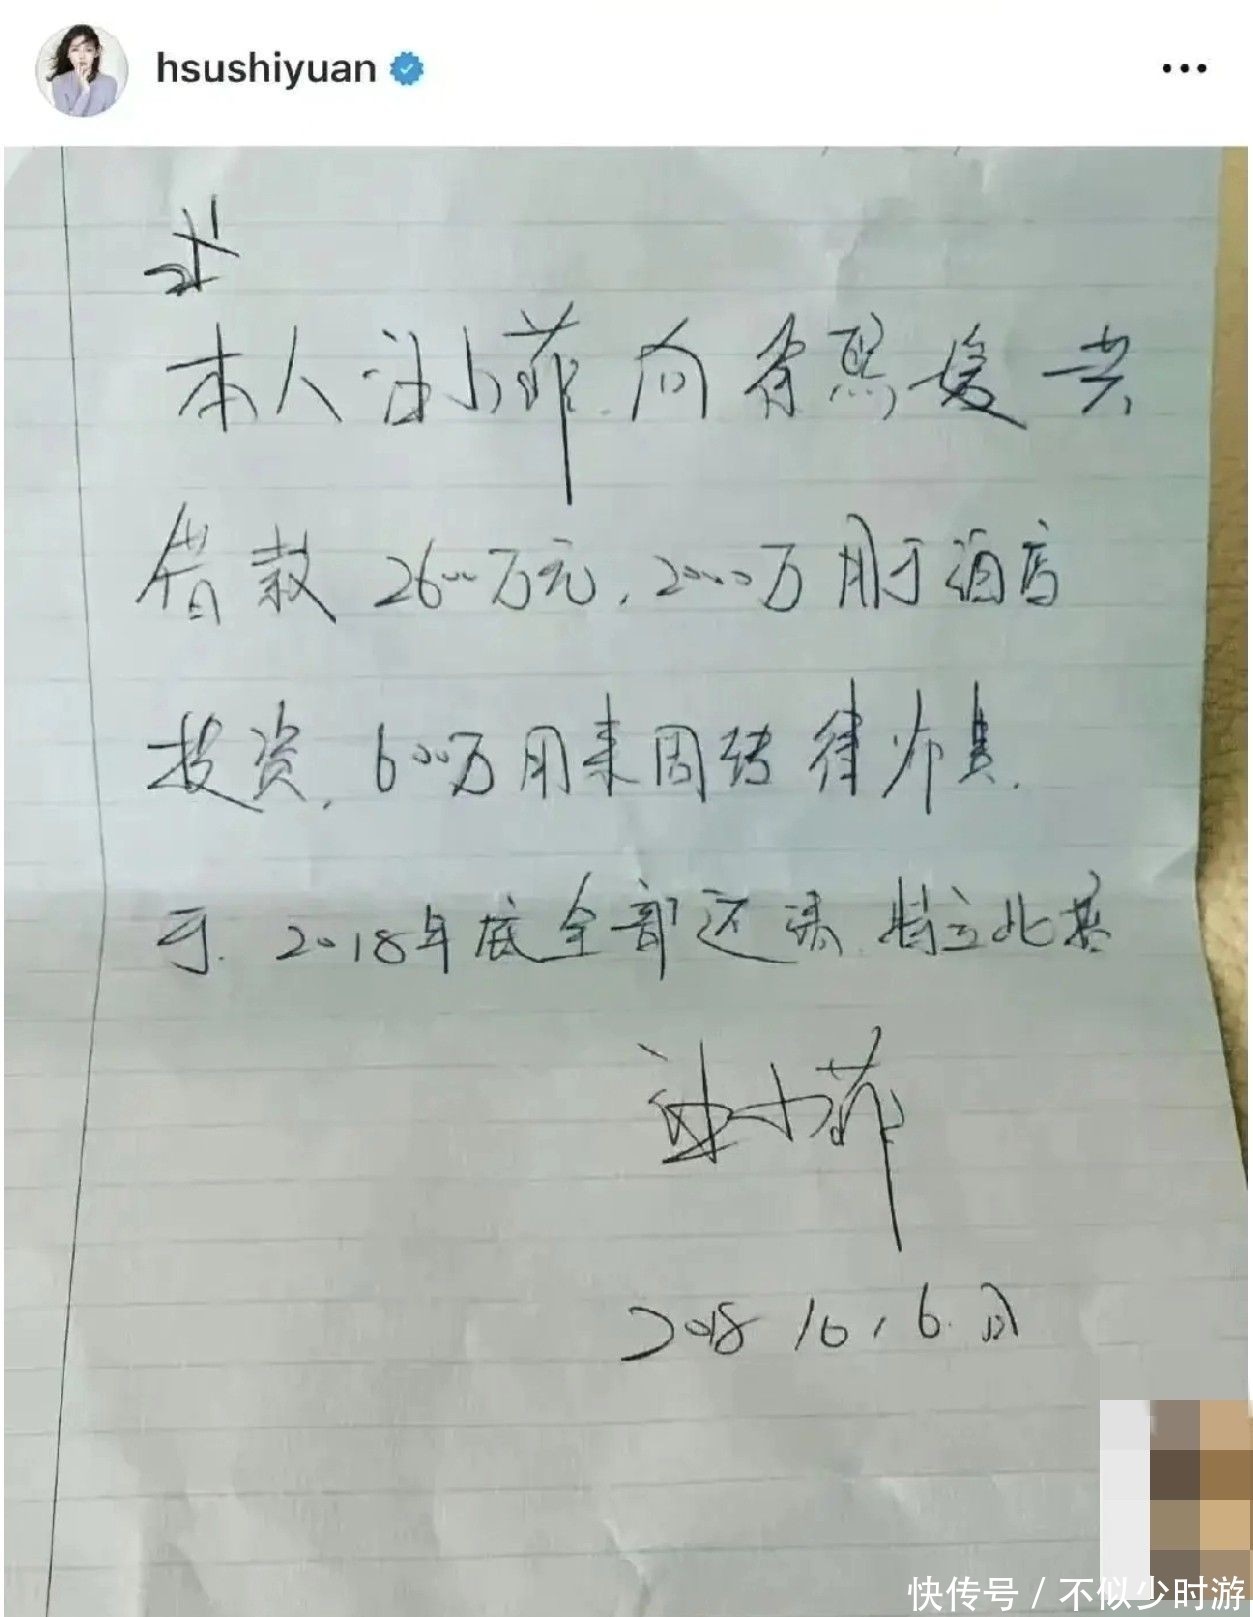 hsushiyuan
本人汪小菲向徐熙媛共
借款2600万元,2000万用于酒店
投资,600万用来周转律师费.
于.2018年底全部还清.特立此字
汪小菲
2018 10,6.日
快传号/不似少时游